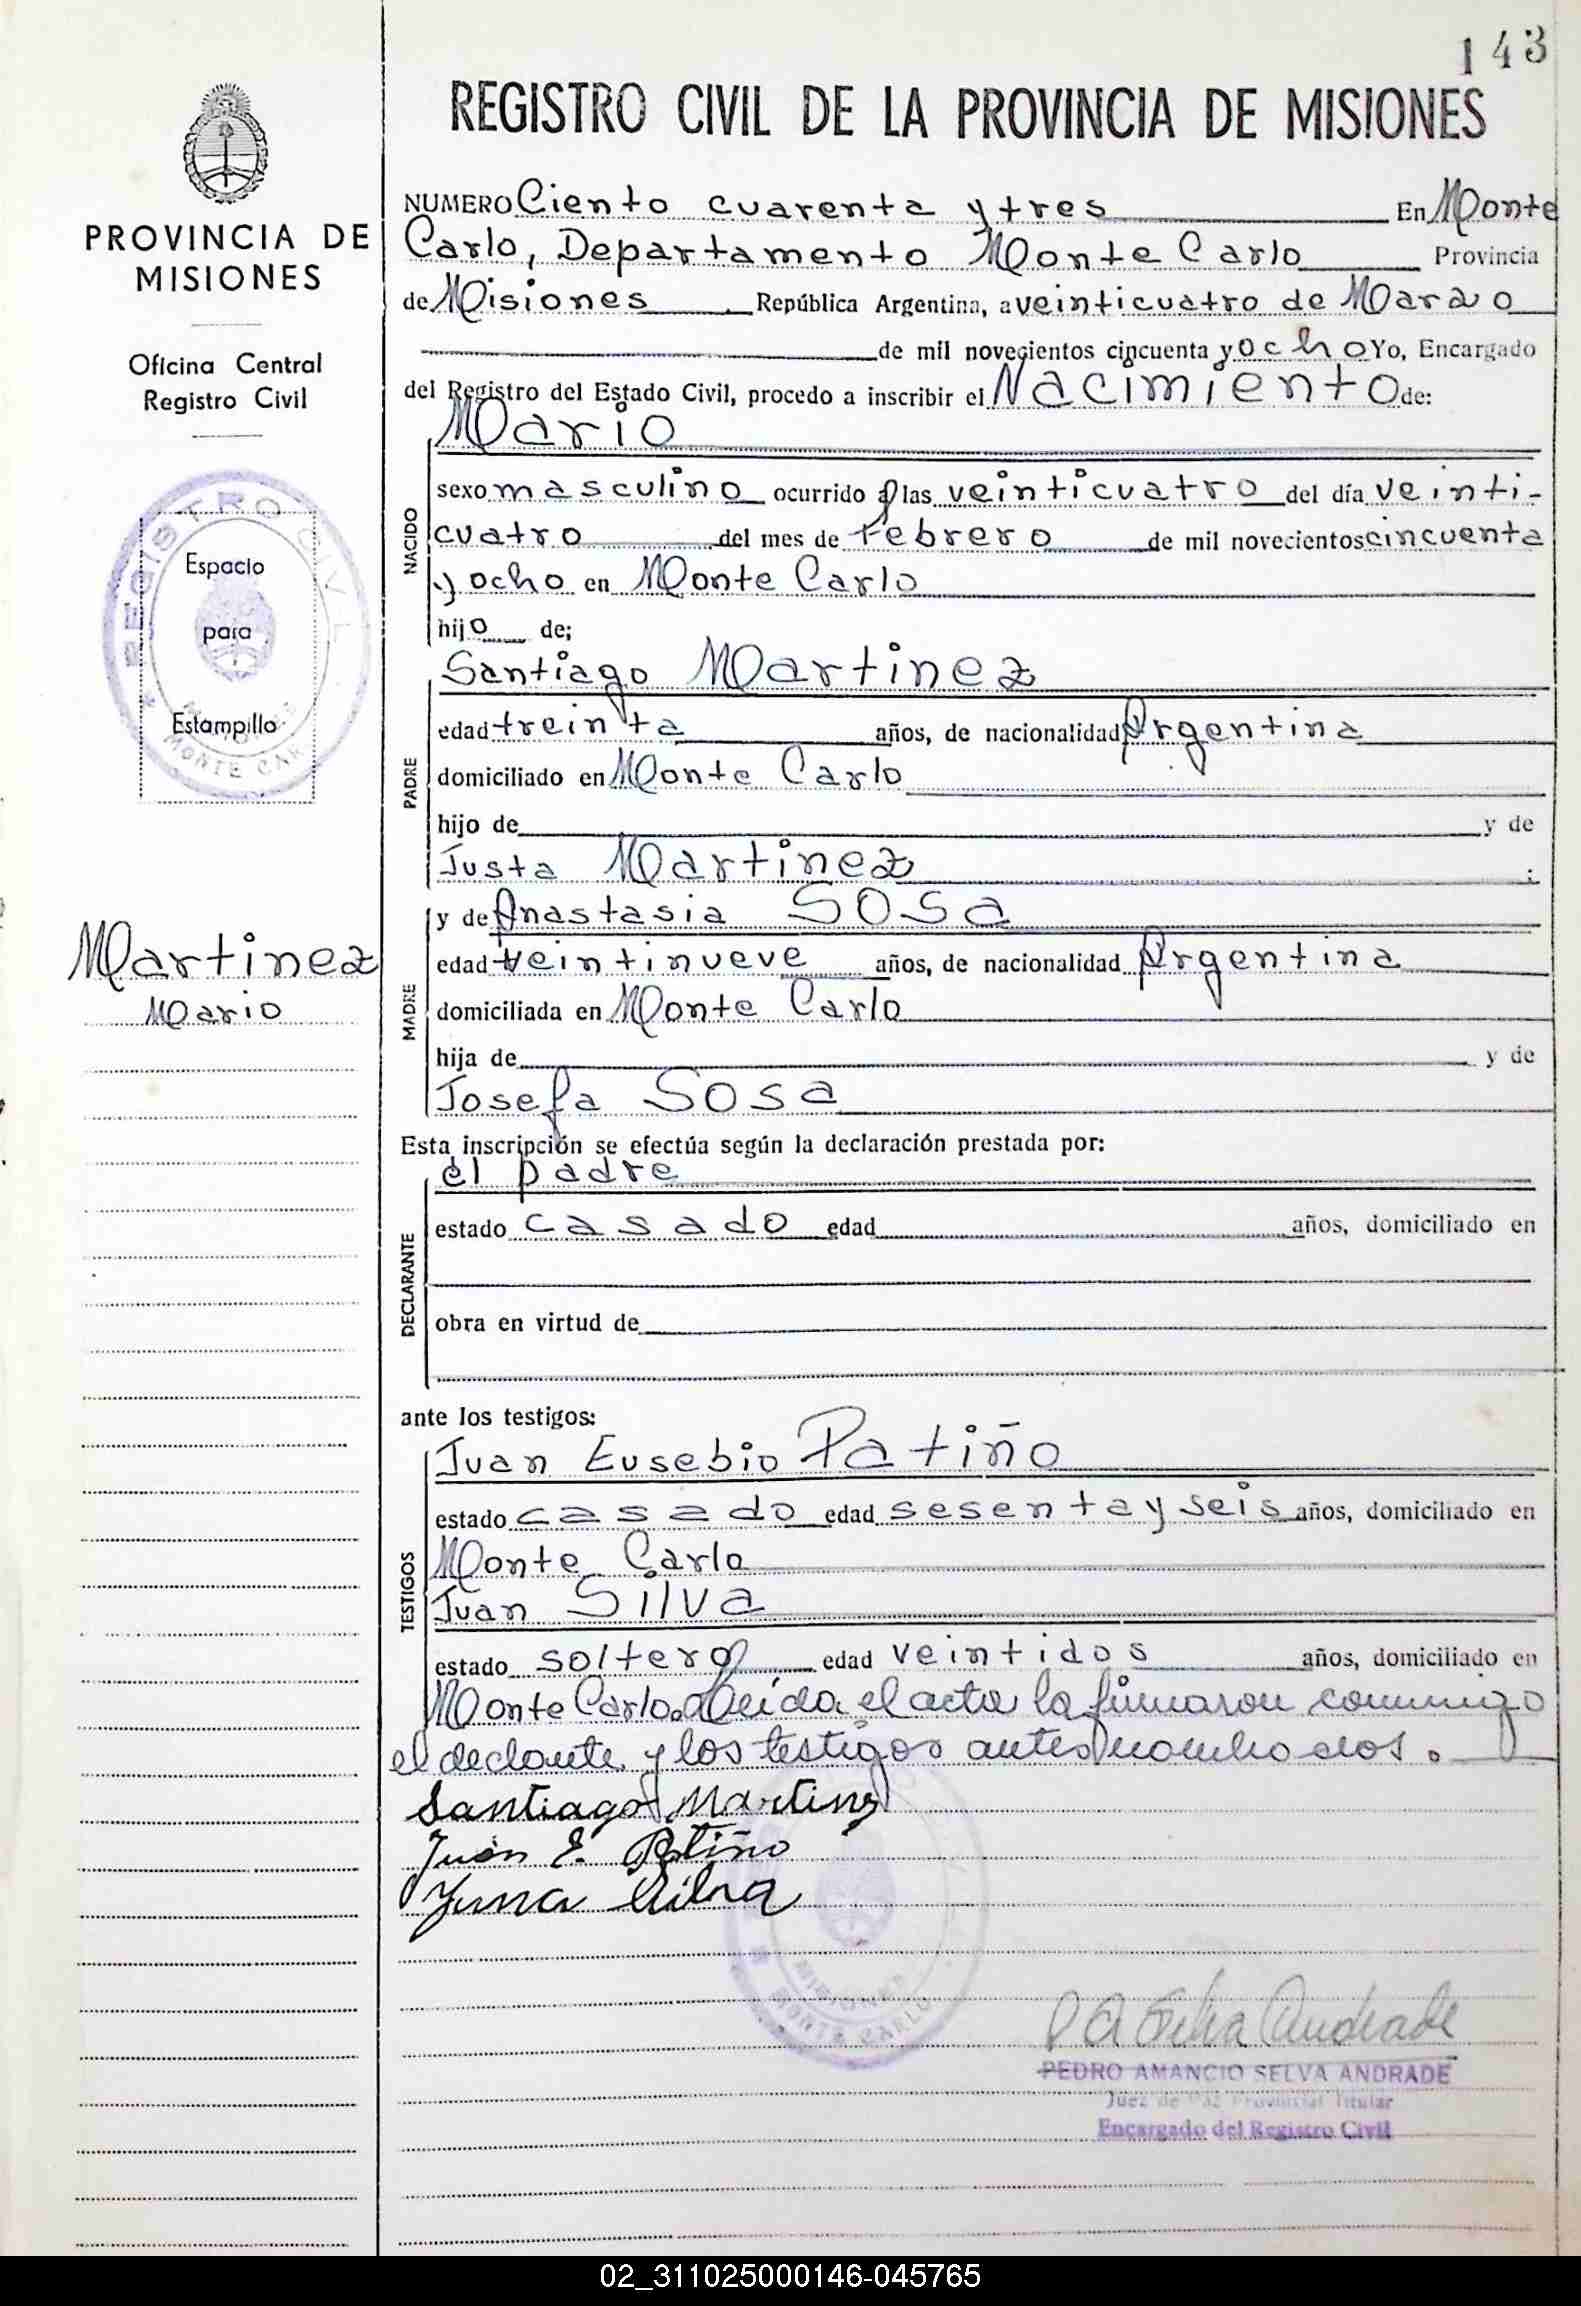 143
REGISTRO CIVIL DE LA PROVINCIA DE MISIONES
PROVINCIA DE
MISIONES
Oficina Central
Registro Civil
REGISTRO CIVIL
Espacio
para
Estampilla
MONTE CAR
Martinez
Mario
NUMERO Ciento cuarenta y tres En Monte
Carlo, Departamento Monte Carlo Provincia
de Misiones República Argentina, a veinticuatro de Marzo
de mil novecientos cincuenta y ocho Yo, Encargado
del Registro del Estado Civil, procedo a inscribir el Nacimiento de:
Mario
NACIDO
sexo masculino ocurrido a las veinticuatro del día veinti-
cuatro del mes de Febrero de mil novecientos cincuenta
y ocho en Monte Carlo
hijo de;
Santiago Martinez
PADRE
edad treinta años, de nacionalidad Argentina
domiciliado en Monte Carlo
hijo de y de
Justa Martinez ;
y de Anastasia Sosa
MADRE
edad veintinueve años, de nacionalidad Argentina
domiciliada en Monte Carlo
hija de y de
Josefa Sosa
Esta inscripción se efectúa según la declaración prestada por:
el padre
DECLARANTE
estado casado edad años, domiciliado en
obra en virtud de
ante los testigos:
Juan Eusebio Patiño
TESTIGOS
estado casado edad sesenta y seis años, domiciliado en
Monte Carlo
Juan Silva
estado soltero edad veintidos años, domiciliado en
Monte Carlo. Leída el acta la firmaron conmigo
el declante y los testigos antes
Santiago Martinez
Juan E. Patiño
Juna Silva
MISIONES
MONTE CARLO
P A Selva Andrade
PEDRO AMANCIO SELVA ANDRADE
Juez de Paz Provincial Titular
Encargado del Registro Civil
02_311025000146-045765